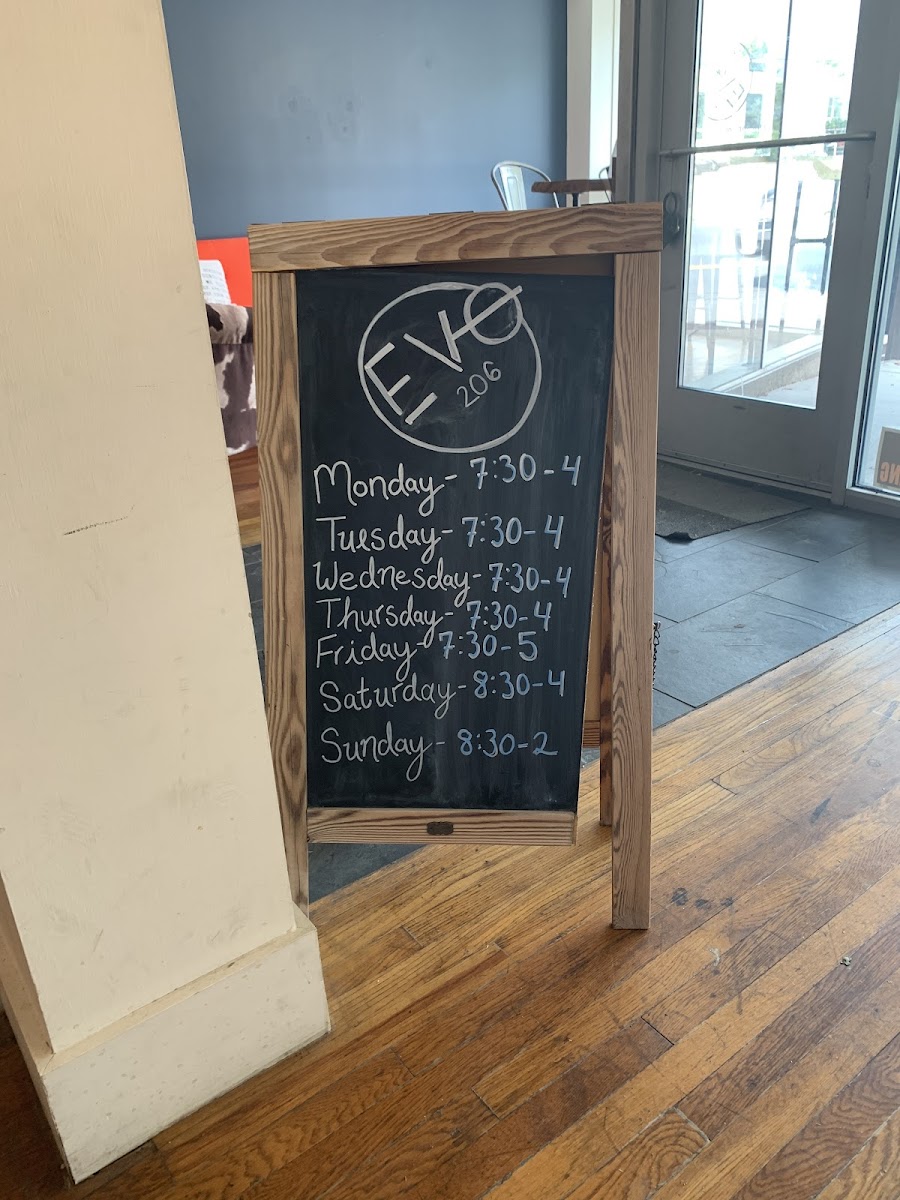 EVO
206
Monday - 7:30 - 4
Tuesday - 7:30 - 4
Wednesday - 7:30 - 4
Thursday - 7:30 - 4
Friday - 7:30 - 5
Saturday - 8:30 - 4
Sunday - 8:30 - 2